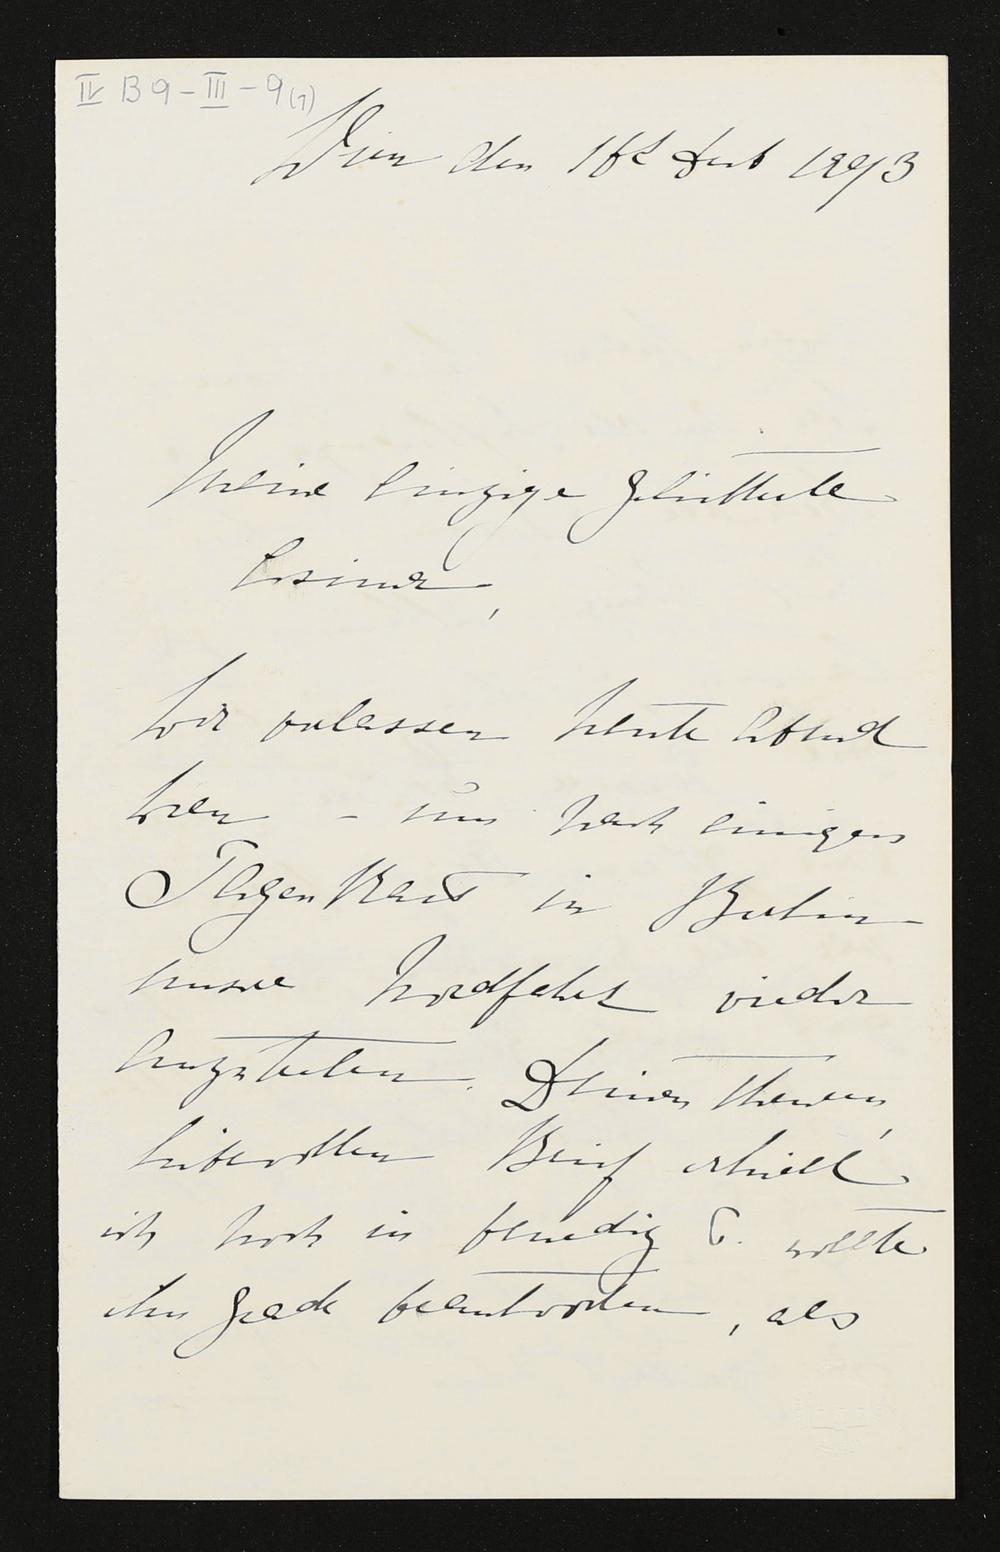 IV B 9 – III – 9 (1)
Wien den 16t 1893
Meine einzige geliebteste
Cosima,
Wir verlassen heute Abend
Wien – um nach einigen
Tagen Rast in Berlin
unsre Nordfahrt wieder
anzutreten. Deinen theuren,
liebevollen Brief erhielt
ich noch in Venedig & wollte
ihn grade beantworten, als